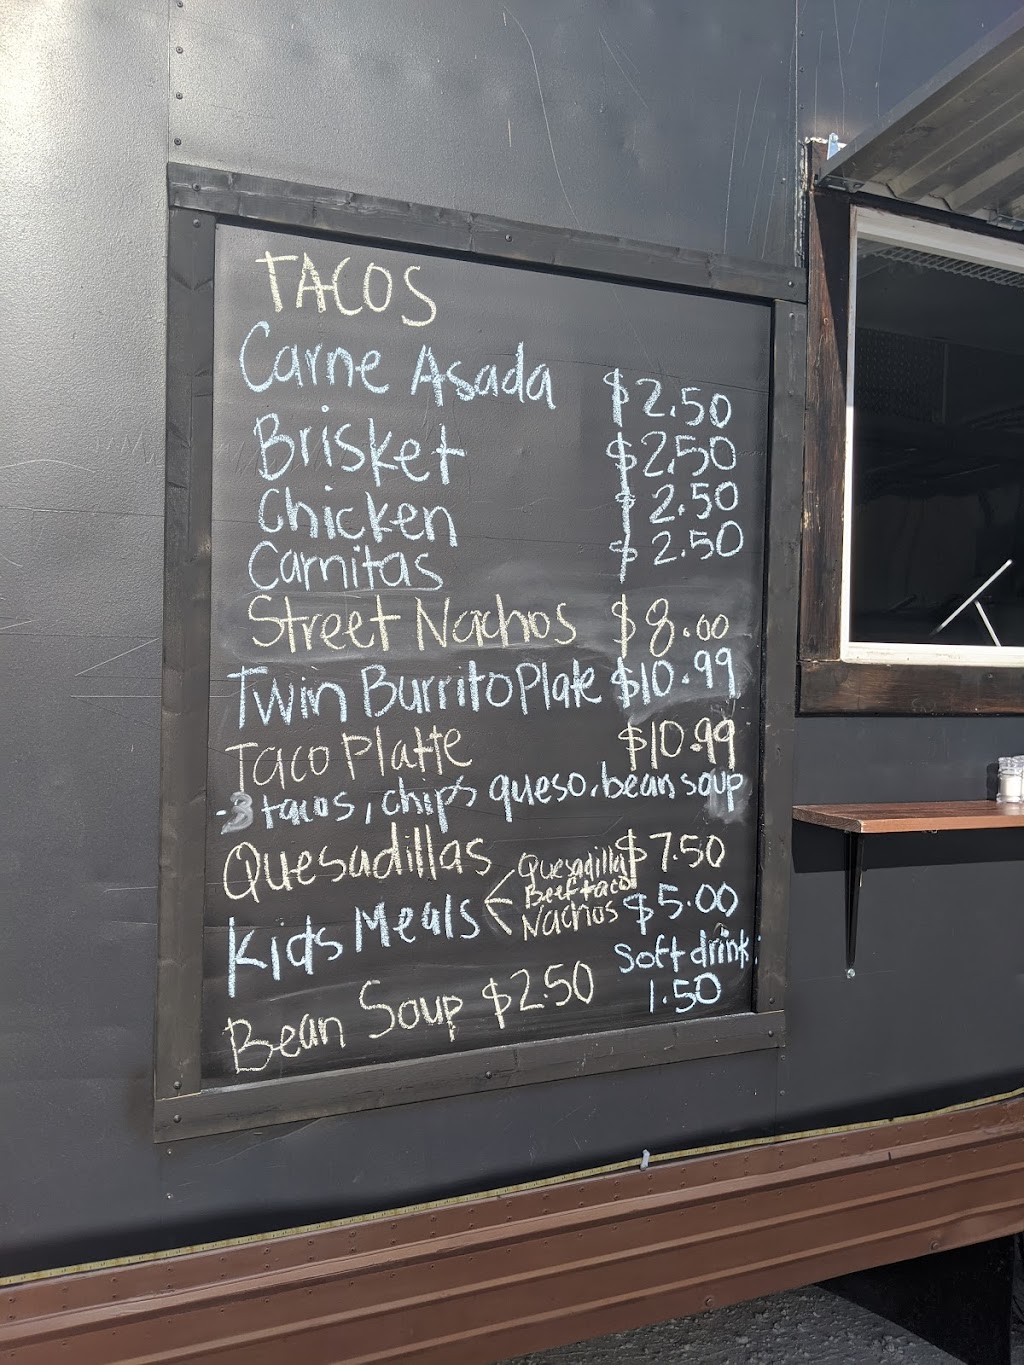 TACOS
Carne Asada $2.50
Brisket $2.50
Chicken $2.50
Carnitas $2.50
Street Nachos $8.00
Twin Burrito Plate $10.99
Taco Platte $10.99
-3 tacos, chips queso, bean soup
Quesadillas $7.50
Kids Meals Quesadilla Beef taco Nachos $5.00
Soft drink
1.50
Bean Soup $2.50